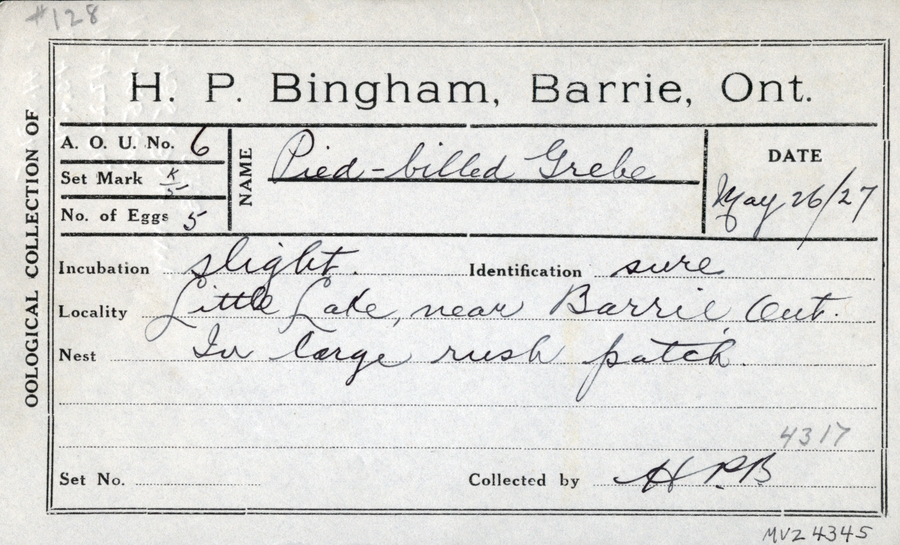 #128
OOLOGICAL COLLECTION OF
H. P. Bingham, Barrie, Ont.
A. O. U. No. 6
Set Mark K/5
No. of Eggs 5
NAME Pied-billed Grebe
DATE
May 26/27
Incubation slight. Identification sure
Locality Little Lake, near Barrie Ont.
Nest In large rush patch.
4317
Set No. Collected by H P.B
MVZ 4345